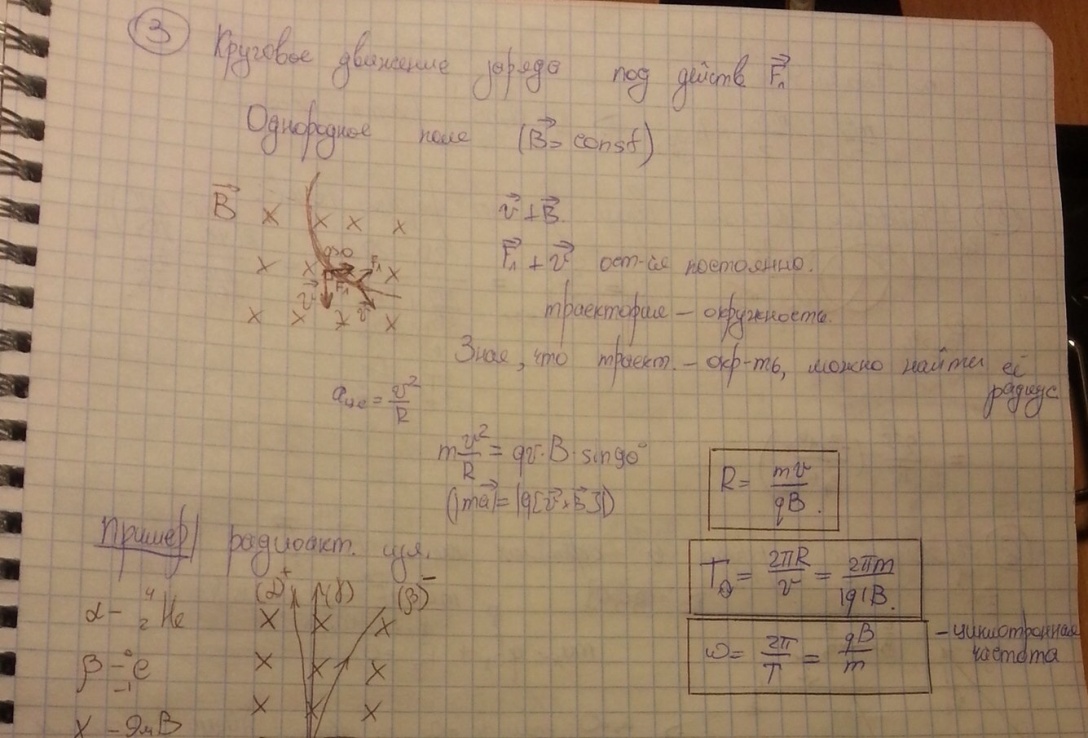 3 Круговое движение заряда под действ F⃗л
Однородное поле (B⃗ = const)
B⃗ x x x x
x x x
x x x x
q>0
Fл
v⃗
Fл
v⃗
v⃗ ⊥ B⃗.
F⃗л ⊥ v⃗ ост-ся постоянно.
траектория – окружность
Зная, что траект. – окр-ть, можно найти её
радиус
aцс = v²/R
m v²/R = qv·B·sin90°
(|ma⃗| = |q[v⃗×B⃗]|)
R = mv/qB.
T₀ = 2πR/v = 2πm/|q|B.
ω = 2π/T = qB/m
– циклотронная
частота
Пример| радиоакт. изл.
(α)⁺ (γ) (β)⁻
α – ⁴₂He x x x
β – ⁰₋₁e x x x
γ – ЭмВ x x x